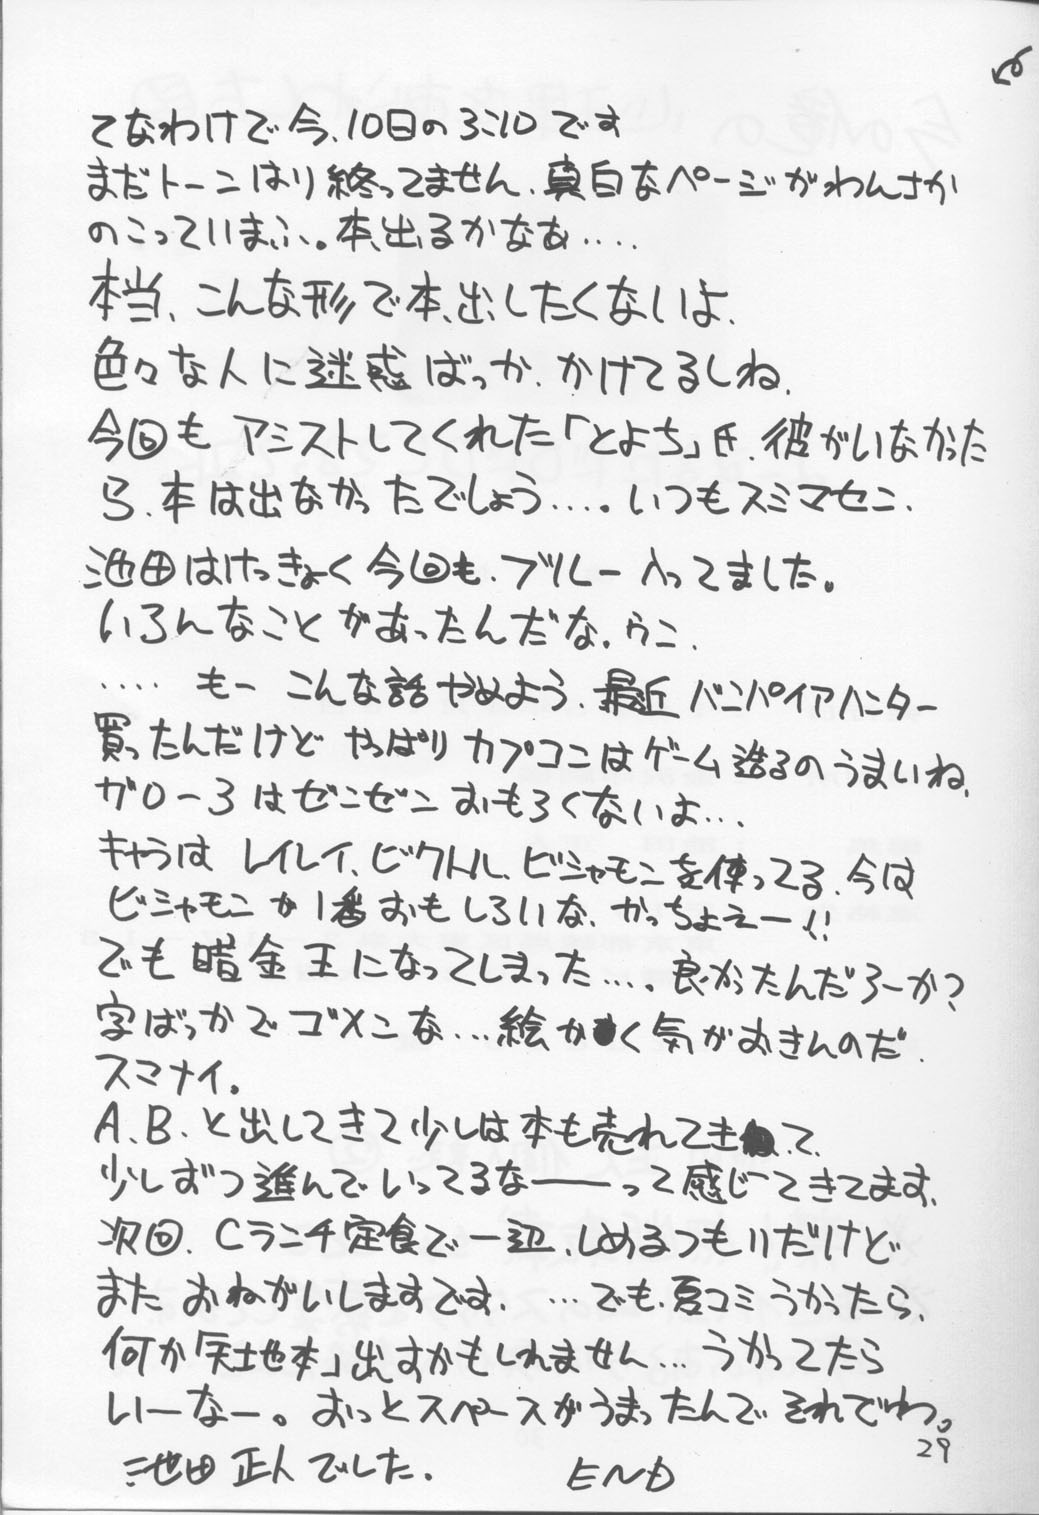 てなわけで今、10日の3:10です
まだトーンはり終ってません、真白なページがわんさか
のこっていまふ。本、出るかなあ‥‥
本当、こんな形で本、出したくないよ、
色々な人に迷惑ばっか、かけてるしね、
今回もアシストしてくれた「とよち」氏、彼がいなかった
ら、本は出なかったでしょう‥‥。いつもスミマセン、
池田はけっきょく今回も、ブルー入ってました。
いろんなことがあったんだな。ウン、
‥‥ もー こんな話やめよう、最近バンパイアハンター
買ったんだけど やっぱりカプコンはゲーム造るのうまいね、
ガロー3はゼンゼンおもろくないよ…
キャラは レイレイ、ビクトル、ビシャモンを使ってる、今は
ビシャモンが1番おもしろいな、かっちょえー!!
でも暗金王になってしまった…。良かったんだろーか?
字ばっかでゴメンな…絵かく気がおきんのだ、
スマナイ。
A、B、と出してきて少しは本も売れてきて、
少しずつ進んでいってるな――って感じてきてます、
次回、Cランチ定食で一辺、しめるつもりだけど
また おねがいしますです、…でも、夏コミうかったら、
何か「天地本」出すかもしれません…うかってたら
いーなー。おっとスペースがうまったんで それでわ。
29
池田 正人 でした. END